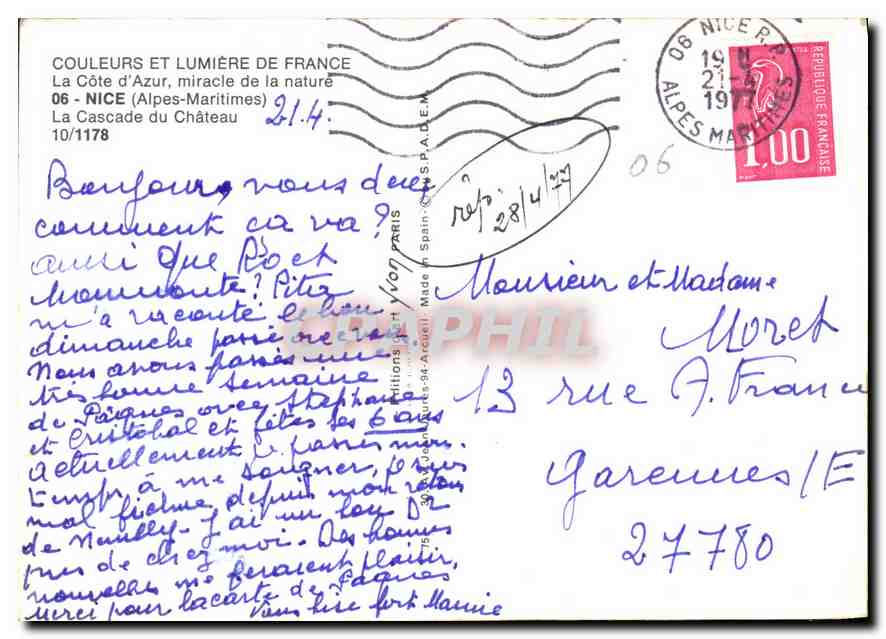 COULEURS ET LUMIÈRE DE FRANCE
La Côte d'Azur, miracle de la nature
06 - NICE (Alpes-Maritimes)
La Cascade du Château
10/1178
21.4.
06 NICE R.P.
19 H
21-4
1977
ALPES MARITIMES
RÉPUBLIQUE FRANÇAISE
1,00
06
rép.
28/4/77
Bonjour, vous deux
comment ça va?
aussi que
? Piter
m'a raconté le bon
dimanche passé avec vous.
Nous avons passés une
très bonne semaine
de Pâques avec Stéphane
et Cristobal et fêtes ses 6 ans
actuellement je passe mon
temps à me soigner, je suis
mal fichue depuis mon retour
de Neuilly - j'ai un bon Dr
près de chez moi. Des bonnes
nouvelles me feraient plaisir,
Merci pour la carte de Pâques
Vous bise fort Mamie
Monsieur et Madame
Moret
13 rue A. France
Garennes/E
27780
Éditions d'art yvon PARIS
Made in Spain - © S.P.A.D.E.M.
CRAPHIL